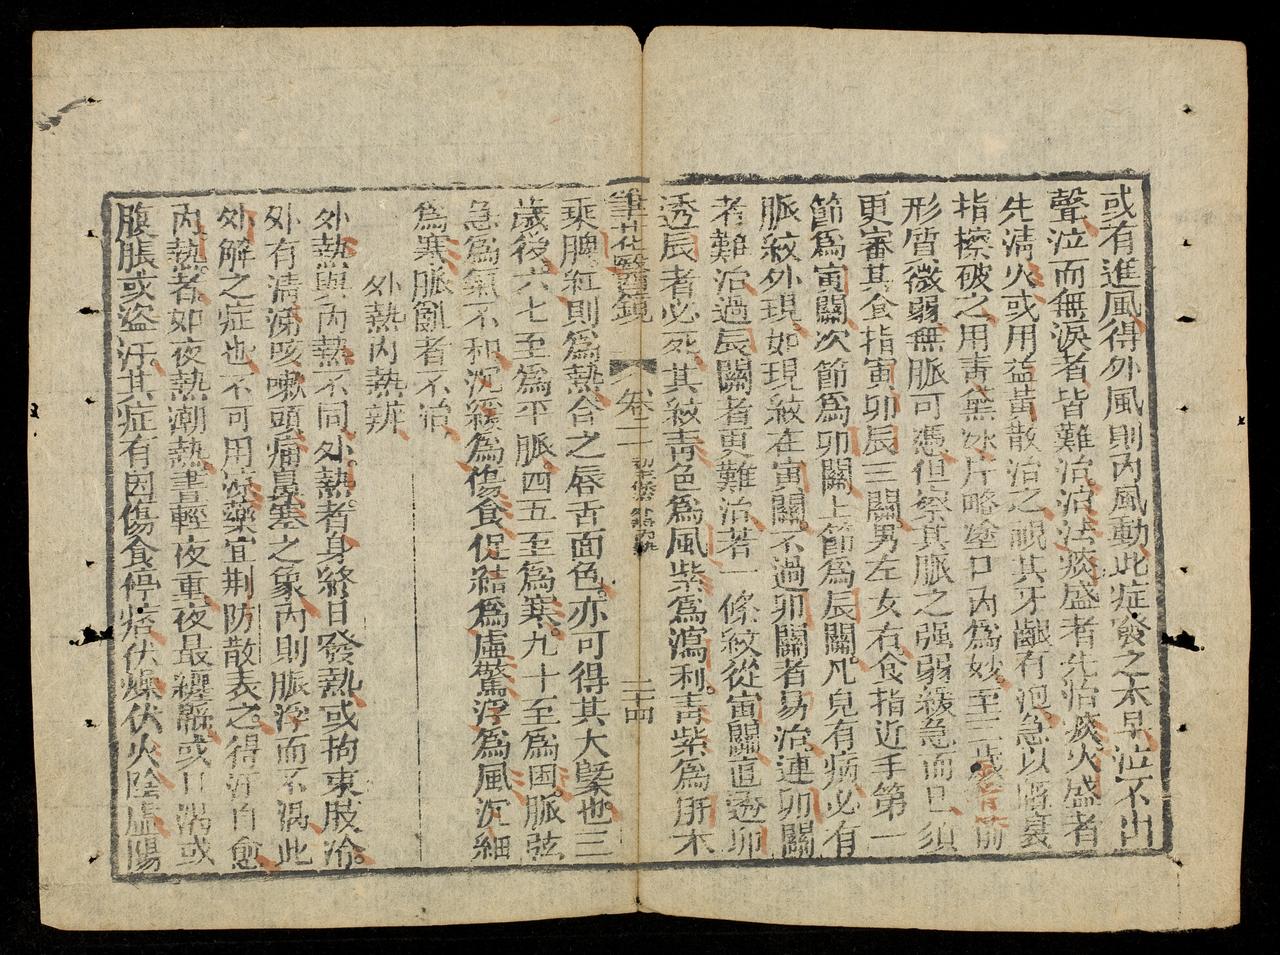 或有進風得外風則內風動此症發之太早泣不出
聲泣而無淚者皆難治治法痰盛者先治痰火盛者
先清火或用益黃散治之視其牙齦有泡急以指裹
指擦破之用青黛妙片略塗口內為妙至三歲前
形質微弱無脈可憑但察其脈之强弱緩急而已須
更審其食指寅卯辰三關男左女右食指近手第一
節為寅關次節為卯關上節為辰關凡兒有病必有
脈紋外現如現紋在寅關不過卯關者易治連卯關
者難治過辰關者更難治若一條紋從寅關直透卯
透辰者必死其紋青色為風紫為瀉利青紫為肝木
筆花醫鏡 卷二 二十四
乘脾紅則為熱合之唇舌面色亦可得其大槩也三
歲後六七至為平脈四五至為寒九十至為困脈弦
急為氣不和沉緩為傷食促結為虛驚浮為風沉細
為寒脈亂者不治
外熱內熱辨
外熱與內熱不同外熱者身終日發熱或拘束肢冷
外有清涕咳嗽頭痛鼻塞之象內則脈浮而不渴此
外解之症也不可用涼藥宜荆防散表之得汗自愈
內熱者如夜熱潮熱晝輕夜重夜最纏綿或口渴或
腹脹或盜汗其症有因傷食停痞伏燥伏火陰虛陽